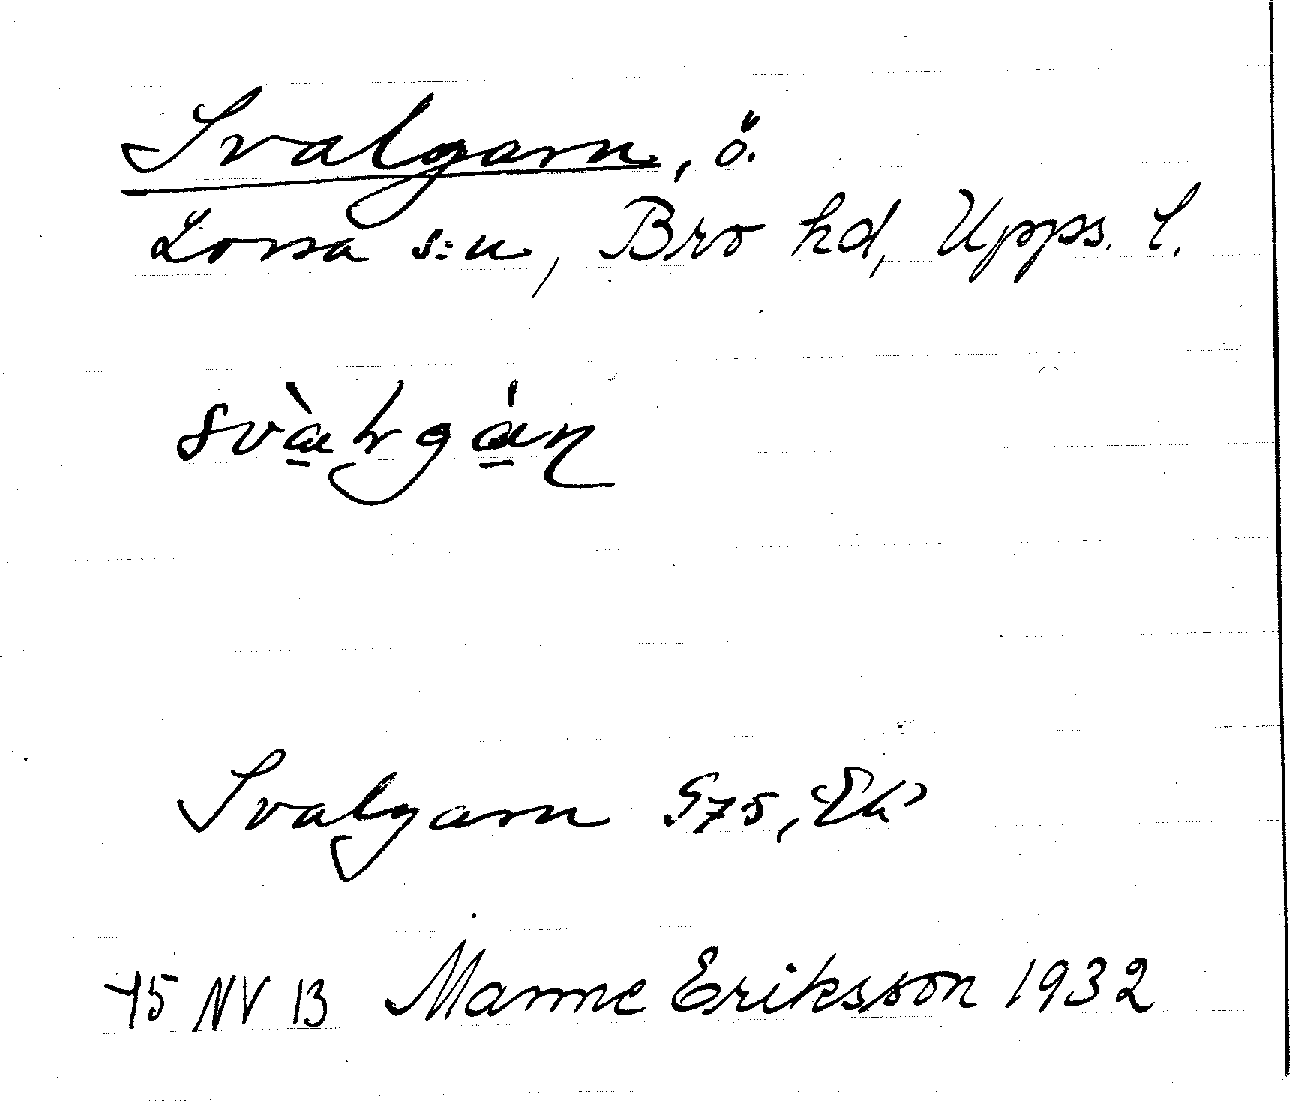 Svalgarn, ö.
Lossa s:n, Bro hd, Upps. l.
Svalgarn G75, Ek
75 NV 13 Manne Eriksson 1932